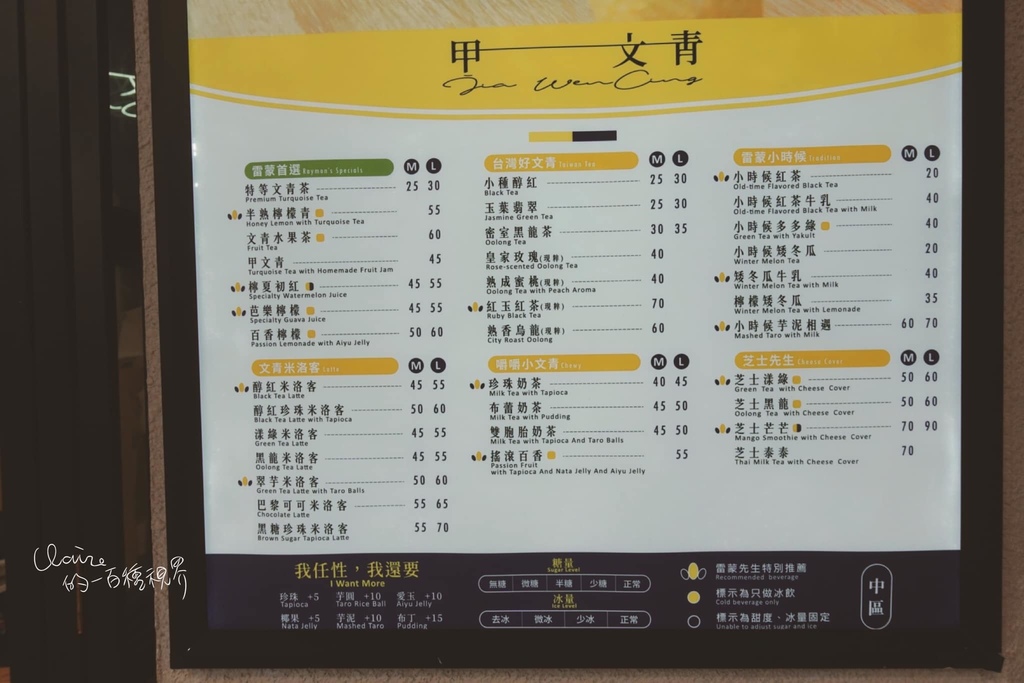 甲文青
Jia Wen Cing
雷蒙首選 Raymon's Specials M L
特等文青茶 25 30
Premium Turquoise Tea
半熟檸檬青 55
Honey Lemon with Turquoise Tea
文青水果茶 60
Fruit Tea
甲文青 45
Turquoise Tea with Homemade Fruit Jam
檸夏初紅 45 55
Specialty Watermelon Juice
芭樂檸檬 45 55
Specialty Guava Juice
百香檸檬 50 60
Passion Lemonade with Aiyu Jelly
文青米洛客 Latte M L
醇紅米洛客 45 55
Black Tea Latte
醇紅珍珠米洛客 50 60
Black Tea Latte with Tapioca
漾綠米洛客 45 55
Green Tea Latte
黑龍米洛客 45 55
Oolong Tea Latte
翠芋米洛客 50 60
Green Tea Latte with Taro Balls
巴黎可可米洛客 55 65
Chocolate Latte
黑糖珍珠米洛客 55 70
Brown Sugar Tapioca Latte
台灣好文青 Taiwan Tea M L
小種醇紅 25 30
Black Tea
玉葉翡翠 25 30
Jasmine Green Tea
密室黑龍茶 30 35
Oolong Tea
皇家玫瑰(現粹) 40
Rose-scented Oolong Tea
熟成蜜桃(現粹) 40
Oolong Tea with Peach Aroma
紅玉紅茶(現粹) 70
Ruby Black Tea
熟香烏龍(現粹) 60
City Roast Oolong
嚼嚼小文青 Chewy M L
珍珠奶茶 40 45
Milk Tea with Tapioca
布蕾奶茶 45 50
Milk Tea with Pudding
雙胞胎奶茶 45 50
Milk Tea with Tapioca And Taro Balls
搖滾百香 55
Passion Fruit
with Tapioca And Nata Jelly And Aiyu Jelly
雷蒙小時候 Tradition M L
小時候紅茶 20
Old-time Flavored Black Tea
小時候紅茶牛乳 40
Old-time Flavored Black Tea with Milk
小時候多多綠 40
Green Tea with Yakult
小時候矮冬瓜 20
Winter Melon Tea
矮冬瓜牛乳 40
Winter Melon Tea with Milk
檸檬矮冬瓜 35
Winter Melon Tea with Lemonade
小時候芋泥相遇 60 70
Mashed Taro with Milk
芝士先生 Cheese Cover M L
芝士漾綠 50 60
Green Tea with Cheese Cover
芝士黑龍 50 60
Oolong Tea with Cheese Cover
芝士芒芒 70 90
Mango Smoothie with Cheese Cover
芝士泰泰 70
Thai Milk Tea with Cheese Cover
我任性，我還要
I Want More
珍珠 +5 芋圓 +10 愛玉 +10
Tapioca Taro Rice Ball Aiyu Jelly
椰果 +5 芋泥 +10 布丁 +15
Nata Jelly Mashed Taro Pudding
糖量
Sugar Level
無糖 微糖 半糖 少糖 正常
冰量
Ice Level
去冰 微冰 少冰 正常
雷蒙先生特別推薦
Recommended beverage
標示為只做冰飲
Cold beverage only
標示為甜度、冰量固定
Unable to adjust sugar and ice
中區
Claire
的一百種視界